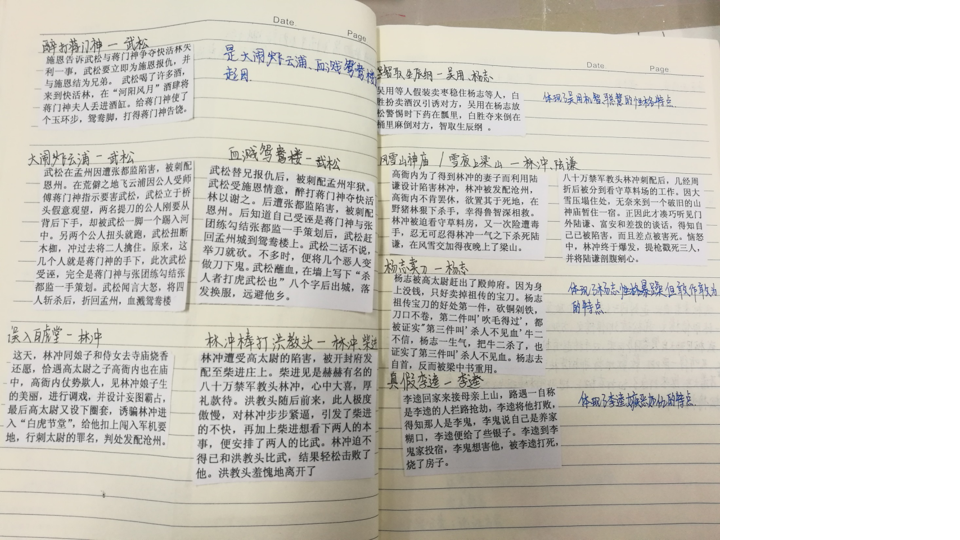 Date
Page
醉打蒋门神 — 武松
施恩告诉武松与蒋门神争夺快活林失
利一事。武松要立即为施恩报仇，并
与施恩结为兄弟。 武松喝了许多酒，
来到快活林，在“河阳风月”酒肆将
蒋门神夫人丢进酒缸。给蒋门神使了
个玉环步，鸳鸯脚，打得蒋门神告饶。
是大闹飞云浦、血溅鸳鸯楼
起因
大闹飞云浦 — 武松
武松在孟州因遭张都监陷害，被刺配
恩州。在荒僻之地飞云浦因公人受师
傅蒋门神指示要害武松，武松立于桥
头假意观望，两名提刀的公人刚要从
背后下手，却被武松一脚一个踢入河
中。另两个公人扭头就跑，武松扭断
木枷，冲过去将二人擒住。原来，这
几个人就是蒋门神的手下，此次武松
受诬，完全是蒋门神与张团练勾结张
都监一手策划。武松闻言大怒，将四
人斩杀后，折回孟州，血溅鸳鸯楼
血溅鸳鸯楼 — 武松
武松替兄报仇后，被刺配孟州牢狱。
武松受施恩情意，醉打蒋门神夺快活
林以谢之。后遭张都监陷害，被刺配
恩州。后知道自己受诬是蒋门神与张
团练勾结张都监一手策划后，武松赶
回孟州城到鸳鸯楼上。武松二话不说，
举刀就砍。不多时，便将几个恶人变
做刀下鬼。武松蘸血，在墙上写下“杀
人者打虎武松也”八个字后出城，落
发换服，远避他乡。
误入白虎堂 — 林冲
这天，林冲同娘子和侍女去寺庙烧香
还愿，恰遇高太尉之子高衙内也在庙
中，高衙内仗势欺人，见林冲娘子生
的美丽，进行调戏，并设计妄图霸占，
最后高太尉又设下圈套，诱骗林冲进
入“白虎节堂”，给他扣上闯入军机要
地，行刺太尉的罪名，判处发配沧州。
林冲棒打洪教头 — 林冲 柴进
林冲遭受高太尉的陷害，被开封府发
配至柴进庄上。柴进见是赫赫有名的
八十万禁军教头林冲，心中大喜，厚
礼款待。洪教头随后前来，此人极度
傲慢，对林冲步步紧逼，引发了柴进
的不快，再加上柴进想看下两人的本
事，便安排了两人的比武。林冲迫不
得已和洪教头比武，结果轻松击败了
他。洪教头羞愧地离开了
Date
Page
智取生辰纲 — 吴用 杨志
吴用等人假装卖枣稳住杨志等人，白
胜扮卖酒汉引诱对方，吴用在杨志放
松警惕时下药在瓢里，白胜夺来倒在
桶里麻倒对方，智取生辰纲 。
体现了吴用机智聪慧的性格特点
风雪山神庙 / 雪夜上梁山 — 林冲 陆谦
高衙内为了得到林冲的妻子而利用陆
谦设计陷害林冲，林冲被发配沧州，
高衙内不肯罢休，欲置其于死地，在
野猪林狠下杀手，幸得鲁智深相救。
林冲被迫看守草料房，又一次险遭毒
手，忍无可忍得林冲一气之下杀死陆
谦，在风雪交加得夜晚上了梁山。
八十万禁军教头林冲刺配后，几经周
折后被分到看守草料场的工作，因大
雪压塌住处，无奈来到一个破旧的山
神庙暂住一宿。正因此才凑巧听见门
外陆谦、富安和差拨的谈话，得知自
己已被陷害，而且差点被害死。恼怒
中，林冲终于爆发，提枪戳死三人，
并将陆谦剖腹剜心。
杨志卖刀 — 杨志
杨志被高太尉赶出了殿帅府。因为身
上没钱，只好卖掉祖传的宝刀。杨志
祖传宝刀的好处第一件，砍铜剁铁，
刀口不卷，第二件叫'吹毛得过'，都
被证实"第三件叫'杀人不见血'牛二
不信，杨志一生气，把牛二杀了，也
证实了第三件叫'杀人不见血。杨志去
自首，反而被梁中书重用。
的特点
真假李逵 — 李逵
李逵回家来接母亲上山，路遇一自称
是李逵的人拦路抢劫，李逵将他打败，
得知那人是李鬼，李鬼说自己是养家
糊口，李逵便给了些银子。李逵到李
鬼家投宿，李鬼想害他，被李逵打死，
烧了房子。